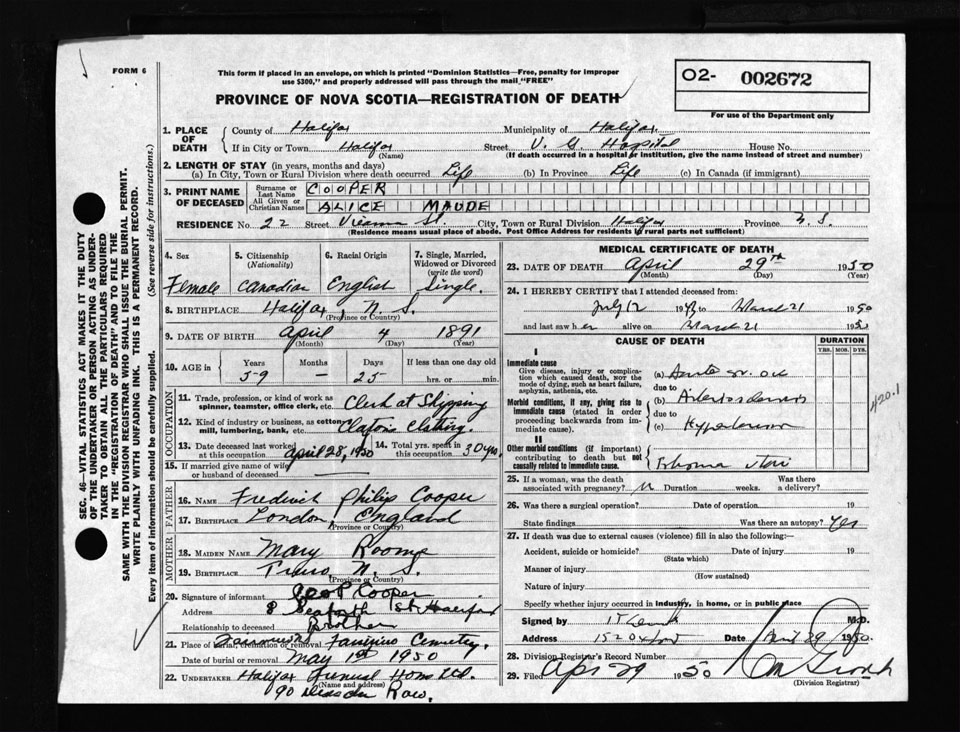 FORM 6
This form if placed in an envelope, on which is printed "Dominion Statistics—Free, penalty for improper
use $300," and properly addressed will pass through the mail "FREE"
PROVINCE OF NOVA SCOTIA—REGISTRATION OF DEATH
02- 002672
For use of the Department only
SEC. 46—VITAL STATISTICS ACT MAKES IT THE DUTY
OF THE UNDERTAKER OR PERSON ACTING AS UNDER-
TAKER TO OBTAIN ALL THE PARTICULARS REQUIRED
IN THE "REGISTRATION OF DEATH" AND TO FILE THE
SAME WITH THE DIVISION REGISTRAR WHO SHALL ISSUE THE BURIAL PERMIT.
WRITE PLAINLY WITH UNFADING INK. THIS IS A PERMANENT RECORD.
Every item of information should be carefully supplied. (See reverse side for instructions.)
1. PLACE OF DEATH County of Halifax Municipality of Halifax
If in City or Town Halifax (Name) Street V. G. Hospital House No.
(If death occurred in a hospital or institution, give the name instead of street and number)
2. LENGTH OF STAY (in years, months and days)
(a) In City, Town or Rural Division where death occurred Life (b) In Province Life (c) In Canada (if immigrant)
3. PRINT NAME OF DECEASED Surname or Last Name COOPER
All Given or Christian Names ALICE MAUDE
RESIDENCE No. 22 Street St. City, Town or Rural Division Halifax Province N. S.
(Residence means usual place of abode. Post Office Address for residents in rural parts not sufficient)
4. Sex 5. Citizenship (Nationality) 6. Racial Origin 7. Single, Married, Widowed or Divorced (write the word)
Female Canadian English Single.
8. BIRTHPLACE Halifax, N. S. (Province or Country)
9. DATE OF BIRTH April 4 1891
(Month) (Day) (Year)
10. AGE in Years Months Days If less than one day old
59 — 25 hrs. or min.
OCCUPATION
11. Trade, profession, or kind of work as spinner, teamster, office clerk, etc. Clerk at Shipping
12. Kind of industry or business, as cotton mill, lumbering, bank, etc. Clothing.
13. Date deceased last worked at this occupation April 28, 1950 14. Total yrs. spent in this occupation 30 yrs.
15. If married give name of wife or husband of deceased
FATHER
16. NAME Fredrick Philip Cooper
17. BIRTHPLACE London, England
(Province or Country)
MOTHER
18. MAIDEN NAME Mary Rooms
19. BIRTHPLACE Truro N. S.
(Province or Country)
20. Signature of informant Cooper
Address 8 St. Halifax
Relationship to deceased Brother
21. Place of burial, cremation or removal Cemetery.
Date of burial or removal May 1st 1950
22. UNDERTAKER Halifax Funeral Home Ltd.
(Name and address)
90 Row.
MEDICAL CERTIFICATE OF DEATH
23. DATE OF DEATH April 29th 1950
(Month) (Day) (Year)
24. I HEREBY CERTIFY that I attended deceased from:
July 12 19 to March 21 1950
and last saw her alive on March 21 1950
CAUSE OF DEATH DURATION
YRS. MOS. DYS.
I
Immediate cause
Give disease, injury or complication which caused death, not the mode of dying, such as heart failure, asphyxia, asthenia, etc.
(a)
due to
Morbid conditions, if any, giving rise to immediate cause (stated in order proceeding backwards from immediate cause).
(b)
due to
(c) Hypertension
420.1
II
Other morbid conditions (if important) contributing to death but not causally related to immediate cause.
uteri
25. If a woman, was the death associated with pregnancy? N Duration weeks. Was there a delivery?
26. Was there a surgical operation? Date of operation 19
State findings Was there an autopsy? Yes
27. If death was due to external causes (violence) fill in also the following:—
Accident, suicide or homicide? Date of injury 19
(State which)
Manner of injury
(How sustained)
Nature of injury
Specify whether injury occurred in industry, in home, or in public place
Signed by M.D.
Address 152 Oxford Date April 29 1950.
28. Division Registrar's Record Number
29. Filed Apr 29 1950
(Division Registrar)